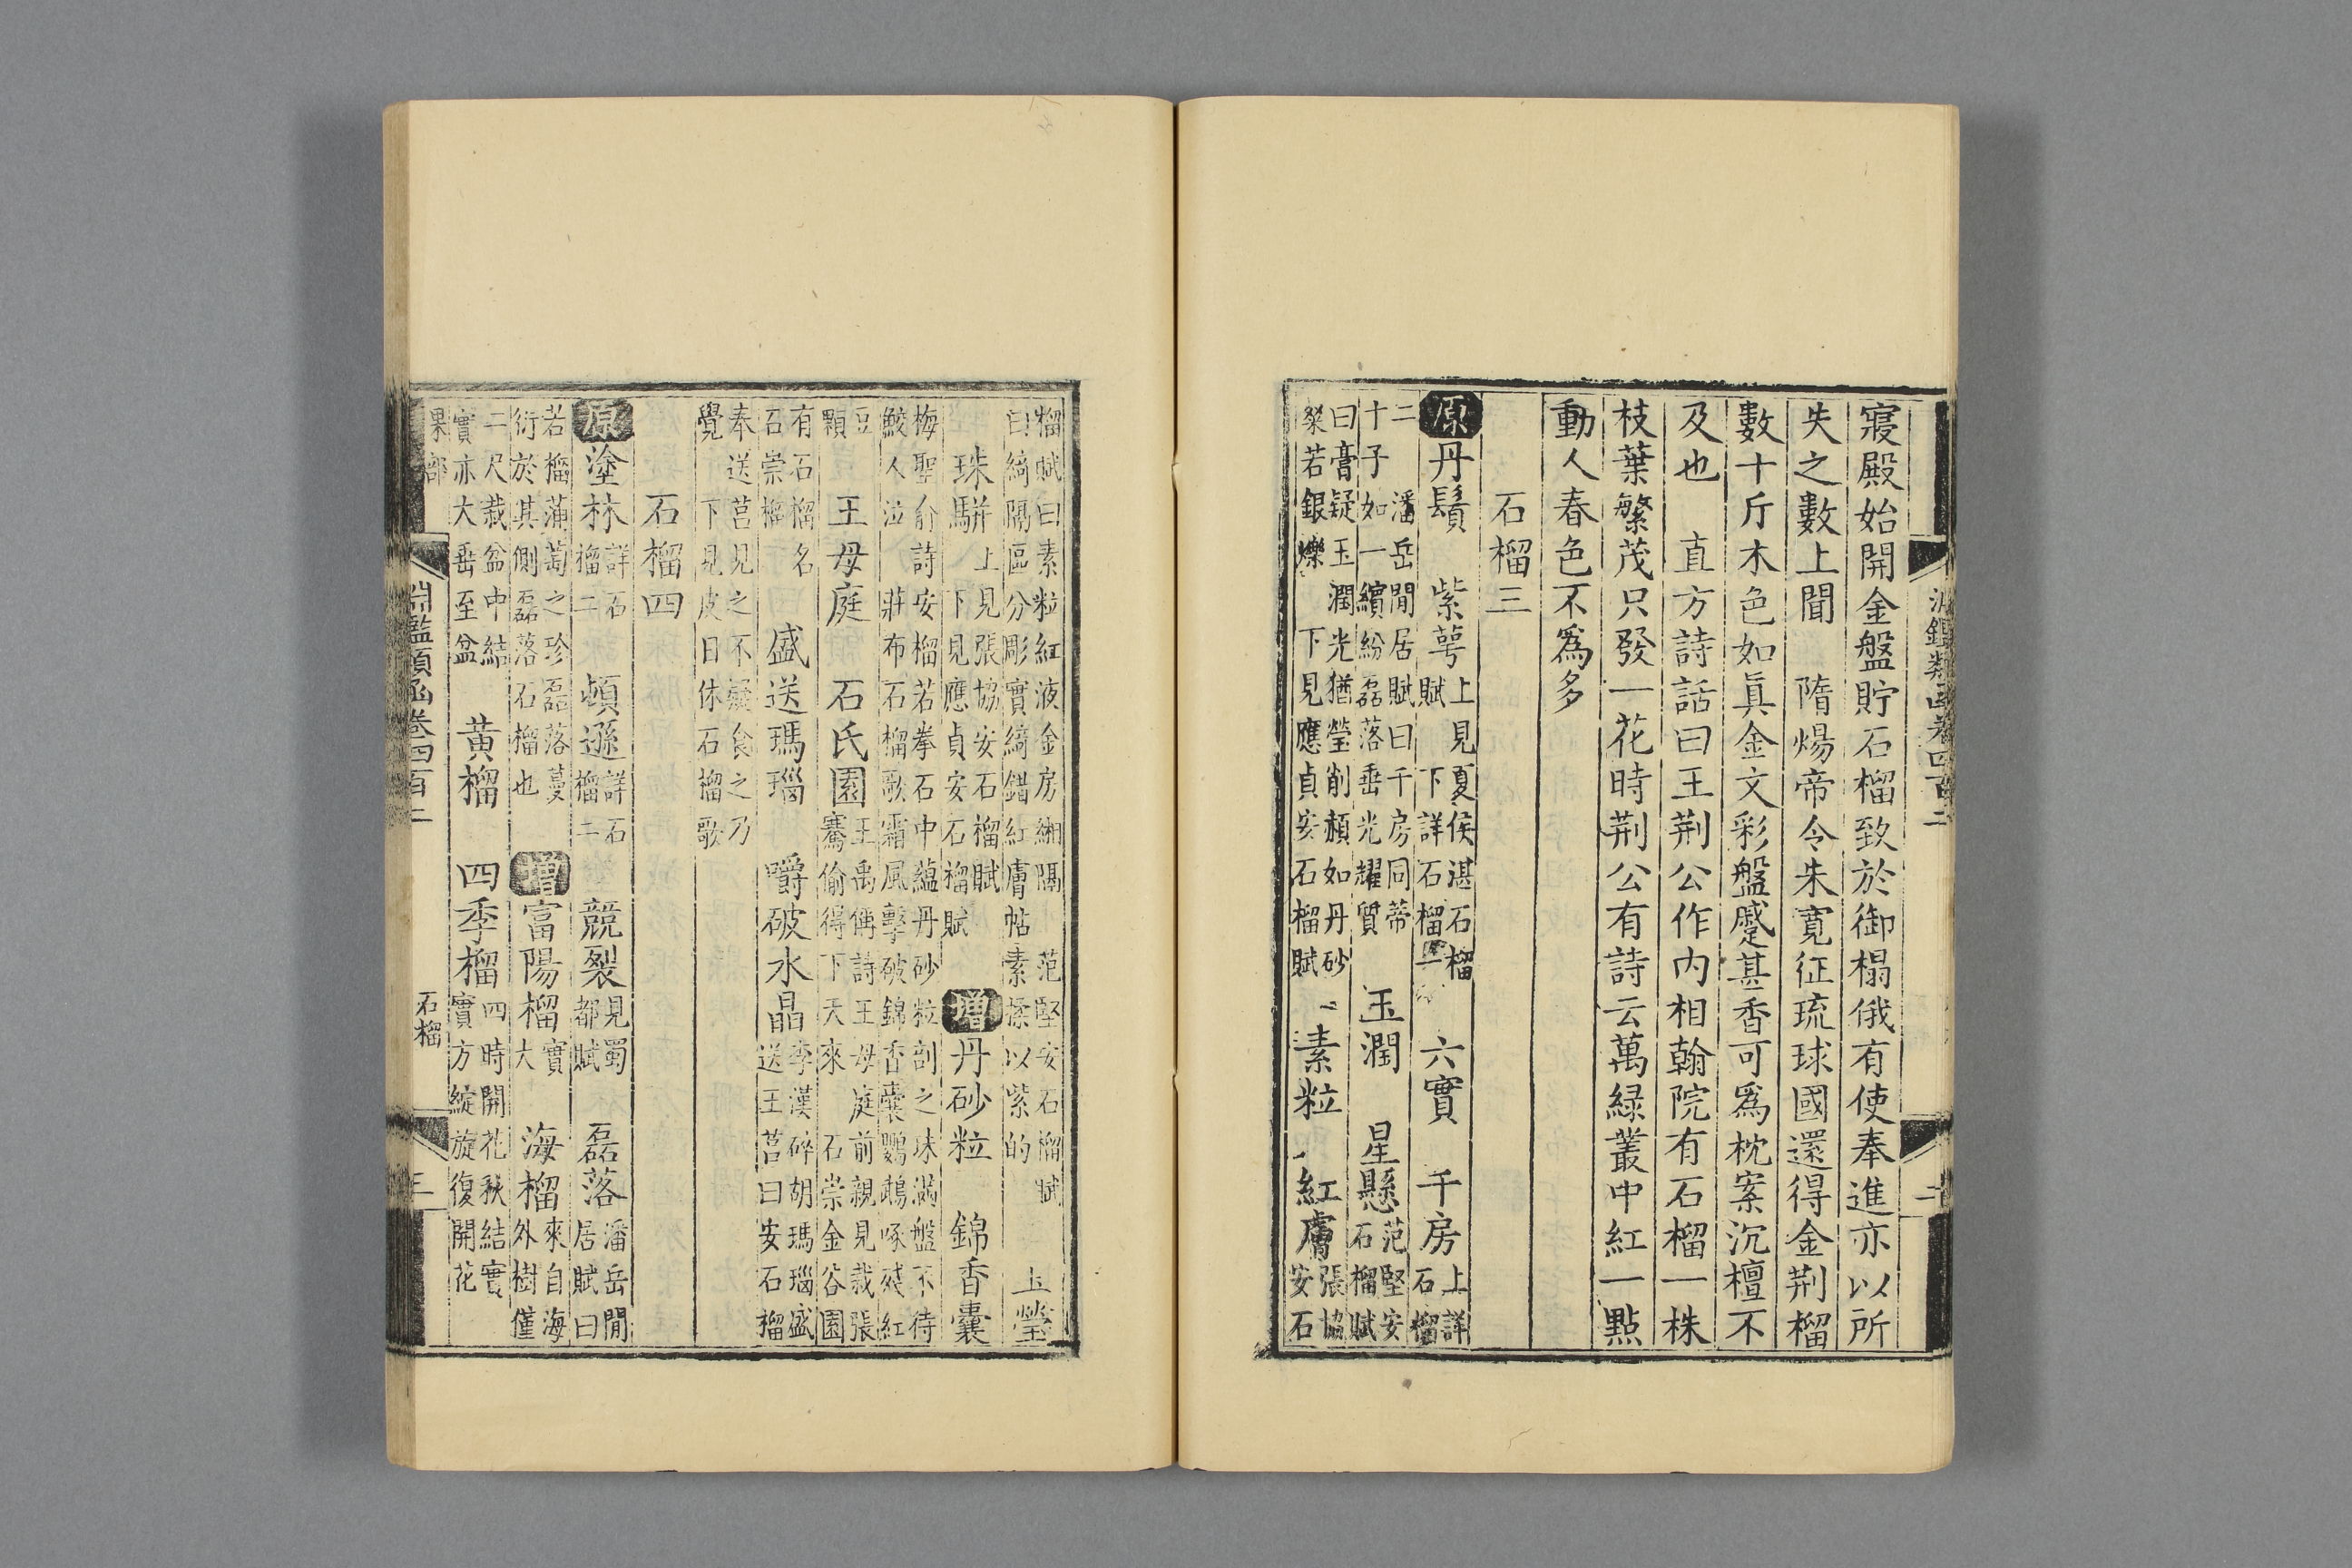 淵鑑類函卷四百二
二
寢殿始開金盤貯石榴致於御榻俄有使奉進亦以所
失之數上聞　隋煬帝令朱寬征琉球國還得金荆榴
數十斤木色如眞金文彩盤蹙甚香可爲枕案沉檀不
及也　直方詩話曰王荆公作内相翰院有石榴一株
枝葉繁茂只發一花時荆公有詩云萬緑叢中紅一點
動人春色不爲多
石榴三
原丹鬚　紫蕚上見夏侯湛石榴賦　下詳石榴二　六實　千房上詳石榴
二　潘岳閒居賦曰千房同蒂十子如一繽紛磊落垂光耀質　玉潤　星懸范堅安石榴賦
曰膏疑玉潤光猶瑩削頳如丹砂粲若銀爍　下見應貞安石榴賦　素粒　紅膚張協安石
榴賦曰素粒紅液金房緗隔　范堅安石榴賦曰綺隔區分彫實綺錯紅膚帖素揉以紫的　玉瑩
珠駢上見張協安石榴賦　下見應貞安石榴賦　增丹砂粒　錦香囊
梅聖俞詩安榴若拳石中蘊丹砂粒剖之珠滿盤不待鮫人泣　莊布石榴歌霜風擊破錦香囊鸚鵡啄殘紅
豆顆　王母庭　石氏園王禹偁詩王母庭前親見栽張騫偷得下天來　石崇金谷園
有石榴名石崇榴　盛送瑪瑙　嚼破水晶李漢碎胡瑪瑙盛送王莒曰安石榴
奉送莒見之不疑食之乃覺　下見皮日休石榴歌
石榴四
原塗林詳石榴二　頓遜詳石榴二　競裂見蜀都賦　磊落潘岳閒居賦曰
若榴蒲萄之珍磊落蔓衍於其側磊落石榴也　增富陽榴實大　海榴來自海外樹僅
二尺栽盆中結實亦大垂至盆　黃榴　四季榴四時開花秋結實實方綻旋復開花
果部
淵鑑類函卷四百二
石榴
三